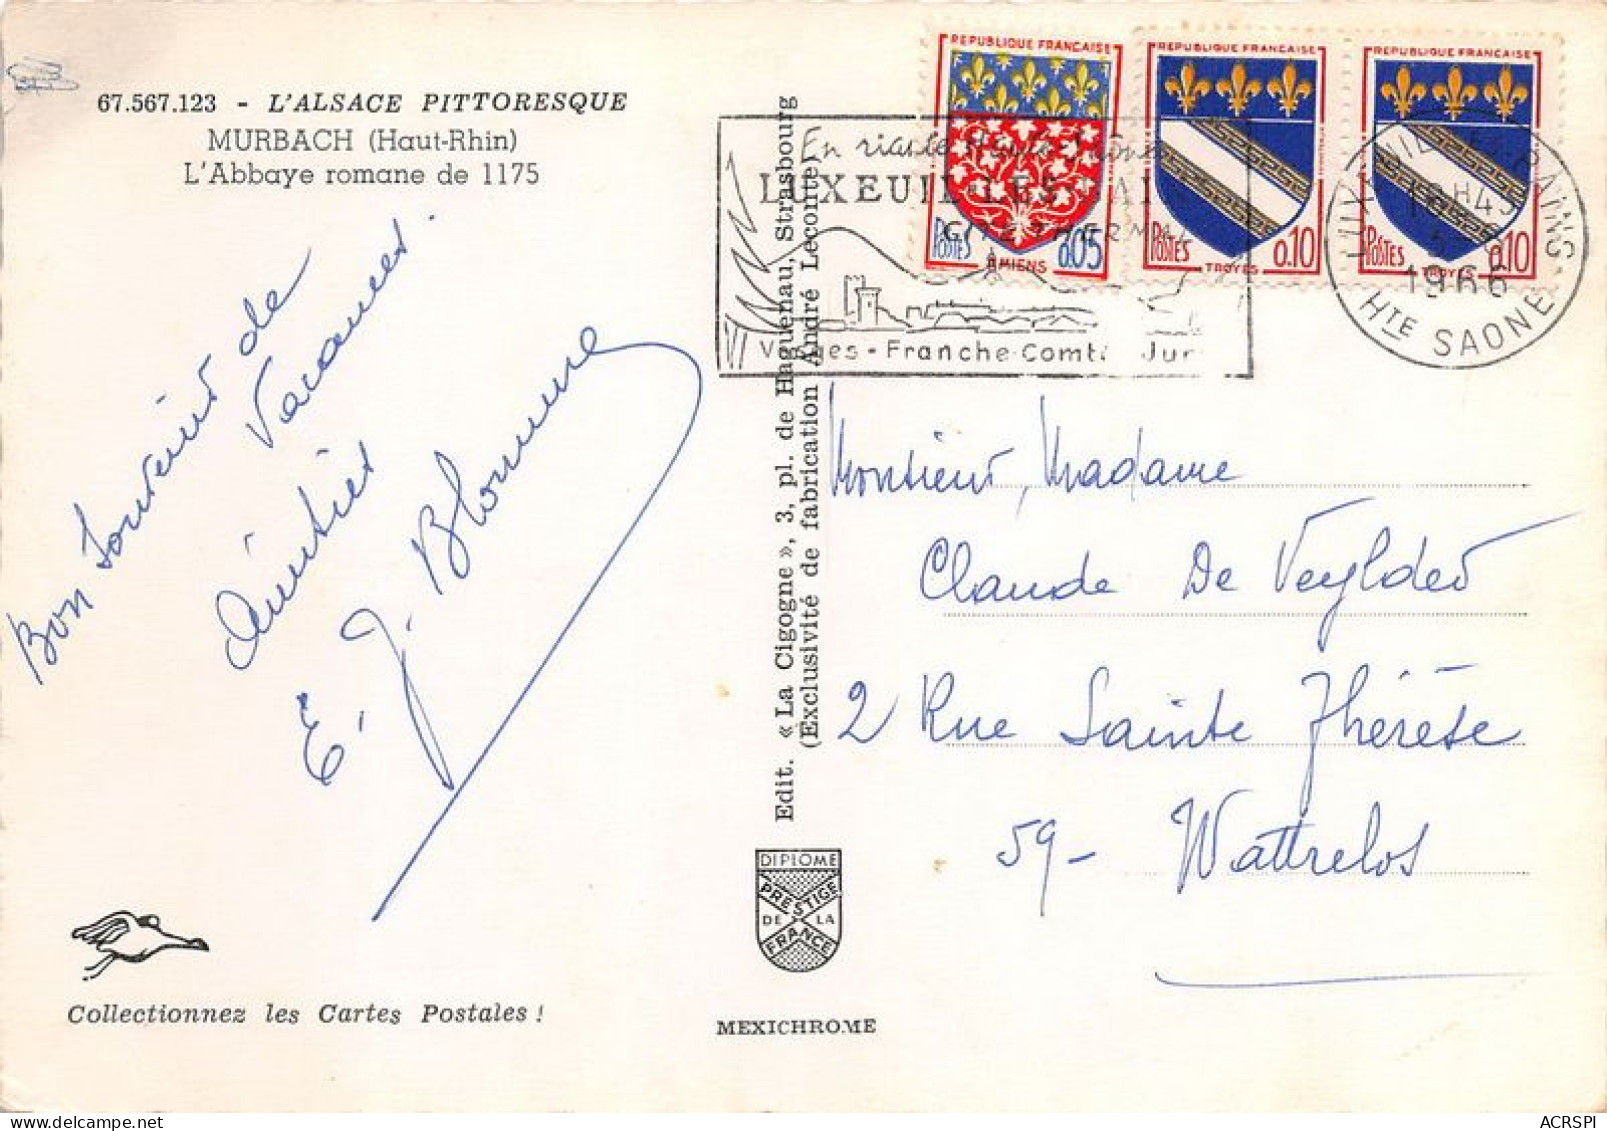 67.567.123 - L'ALSACE PITTORESQUE
MURBACH (Haut-Rhin)
L'Abbaye romane de 1175
Bon Souvenir de
Vacances.
Amitiés
E. J. Blomme
Collectionnez les Cartes Postales !
Edit. « La Cigogne », 3, pl. de Haguenau, Strasbourg
(Exclusivité de fabrication André Leconte)
DIPLOME
PRESTIGE
DE LA
FRANCE
MEXICHROME
REPUBLIQUE FRANÇAISE
POSTES 0.05
AMIENS
REPUBLIQUE FRANÇAISE
POSTES 0.10
TROYES
REPUBLIQUE FRANÇAISE
POSTES 0.10
TROYES
En riante
LUXEUIL-LES-BAI
Vosges - Franche-Comté Jur
1966
HTE SAONE
Monsieur, Madame
Claude De Veylder
2 Rue Sainte Thérèse
59 - Wattrelos
ACRSPI